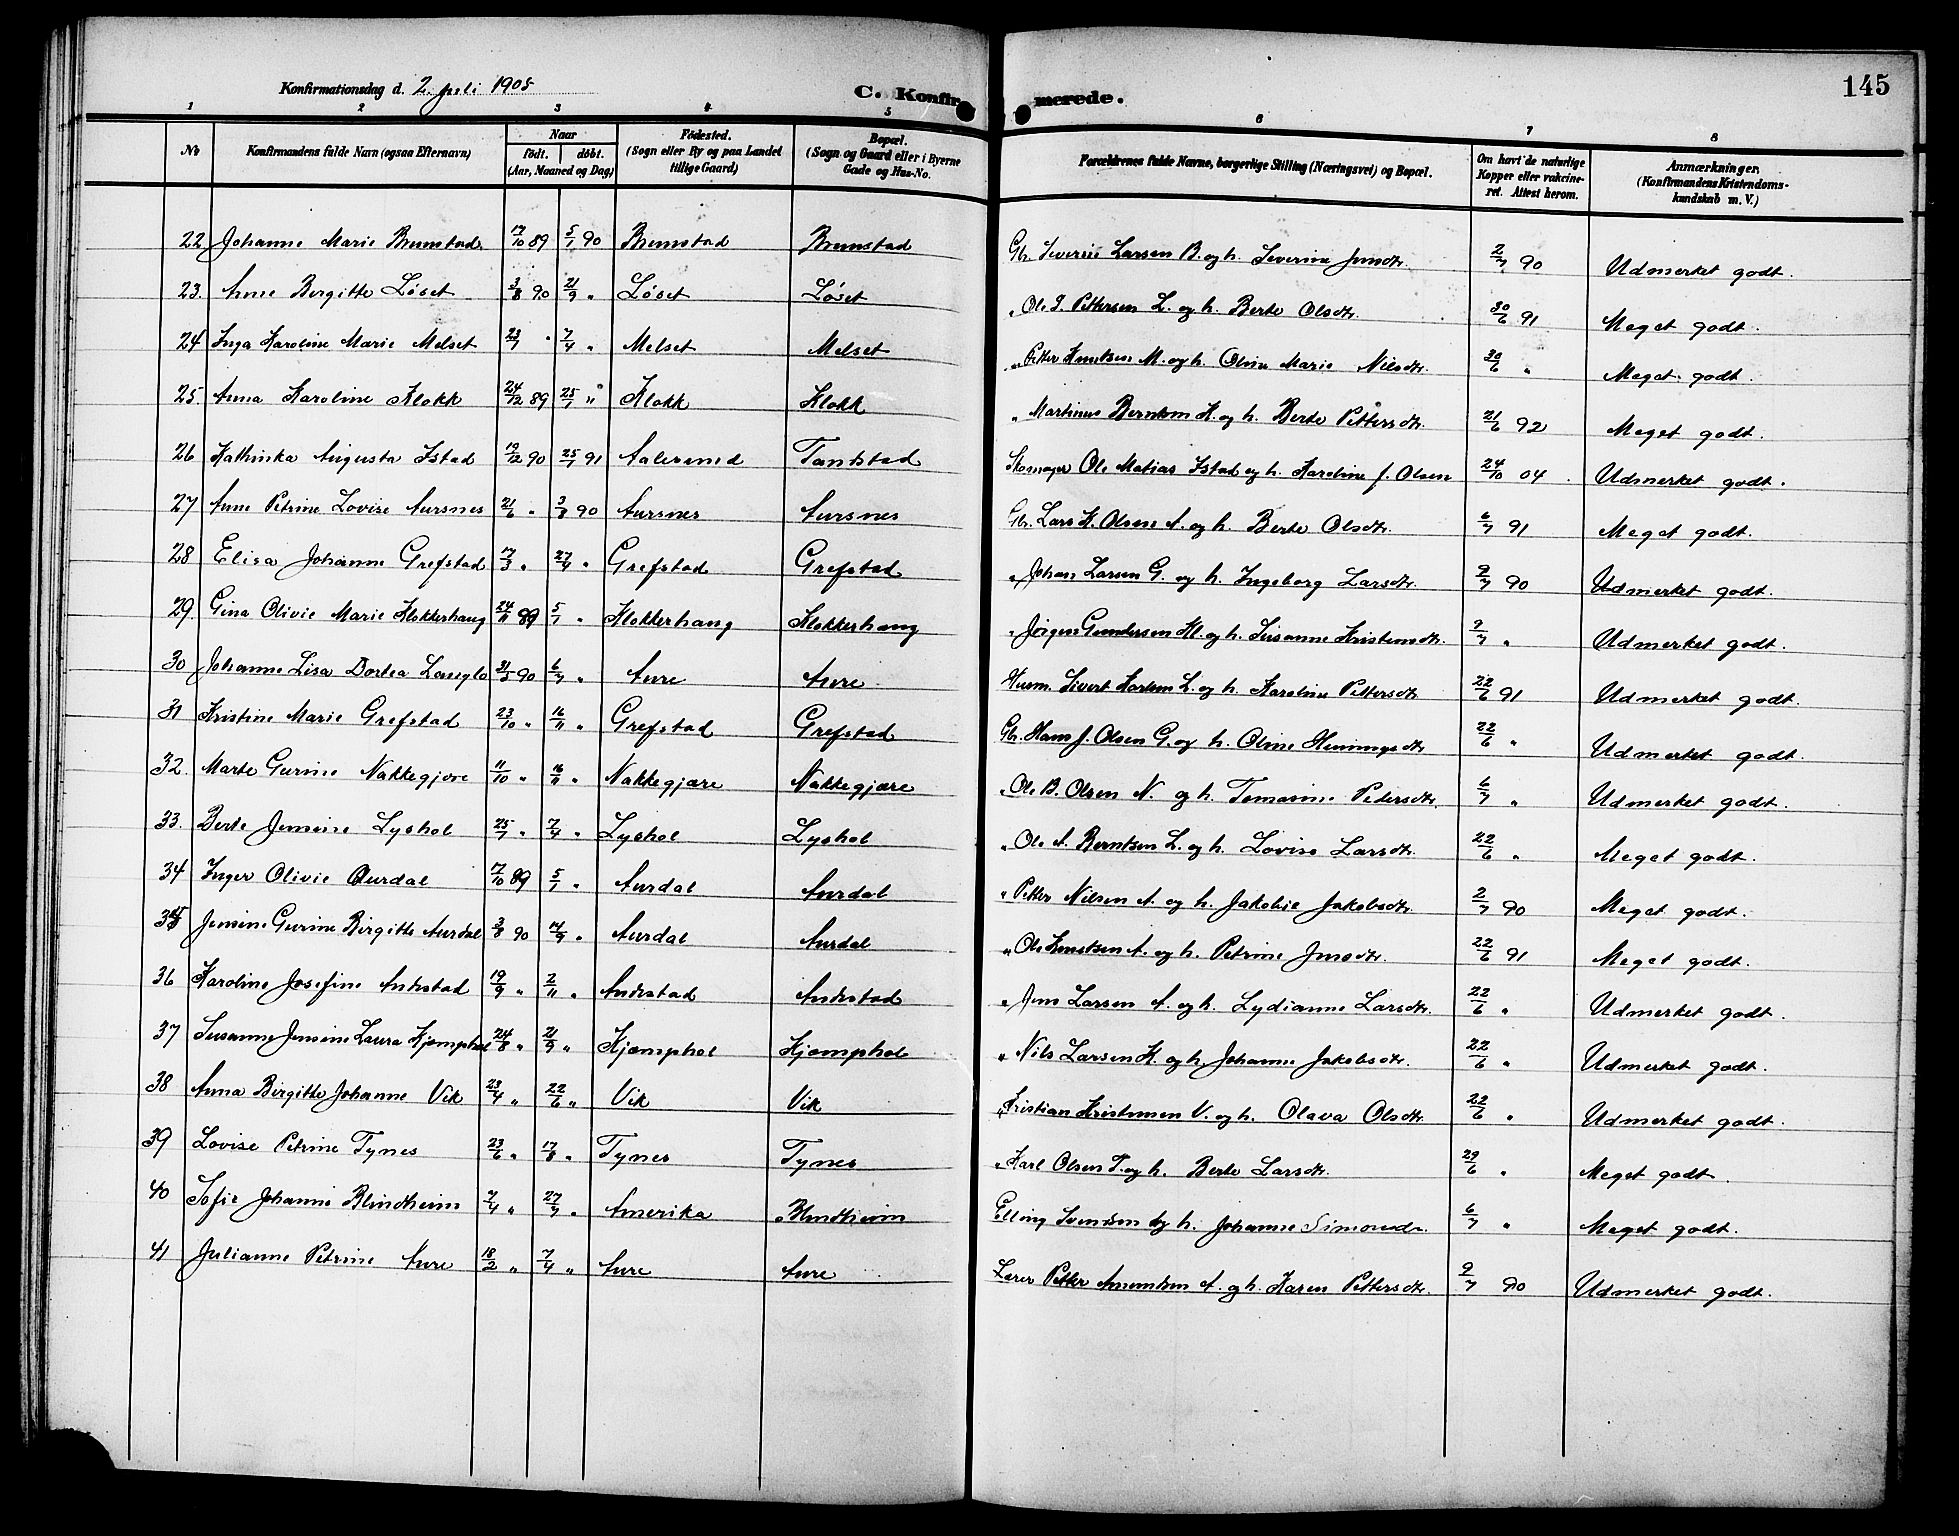 Konfirmationsdag d. 2. juli 1905
C. Konfirmerede.
145
1 2 3 4 5 6 7 8
No
Konfirmandens fulde Navn (ogsaa Efternavn)
Naar
født. døbt.
(Aar, Maaned og Dag)
Fødested.
(Sogn eller By og paa Landet
tillige Gaard)
Bopæl.
(Sogn og Gaard eller i Byerne
Gade og Hus-No.
Forældrenes fulde Navne, borgerlige Stilling (Næringsvei) og Bopæl.
Om havt de naturlige
Kopper eller vakcine-
ret. Attest herom.
Anmærkninger.
(Konfirmandens Kristendoms-
kundskab m. V.)
22 Johanne Marie Brunstad 17/10 89 5/1 90 Brunstad Brunstad Gbr. Severin Larsen B. og h. Severine Jensdtr. 2/7 90 Udmerket godt.
23. Anne Birgitte Løset 3/8 90 21/9 " Løset Løset " Ole I. Pettersen L. og h. Berte Olsdtr. 30/6 91 Meget godt.
24 Inga Karoline Marie Melset 23/1 " 7/4 " Melset Melset " Petter Knutsen M. og h. Oline Marie Nilsdtr. 30/6 " Meget godt.
25. Anna Karoline Klokk 24/12 89 25/1 " Klokk Klokk " Martinus Berntsen K. og h. Berte Pettersdtr. 21/6 92 Meget godt.
26 Kathinka Augusta Istad 19/12 90 25/1 91 Aalesund Tandstad Skomager Ole Matias Istad og h. Karoline f. Olsen 24/10 04 Udmerket godt.
27 Anne Petrine Lovise Aursnes 21/6 " 3/8 90 Aursnes Aursnes Gbr. Lars K. Olsen A. og h. Berte Olsdtr. 6/7 91 Meget godt.
28 Elisa Johanne Grefstad 17/3 " 27/4 " Grefstad Grefstad " Johan Larsen G. og h. Ingeborg Larsdtr. 9/7 90 Udmerket godt.
29 Gina Olivie Marie Klokkerhaug 24/11 89 5/1 " Klokkerhaug Klokkerhaug " Jörgen Gundersen Kl. og h. Susanne Kristensdtr. 9/7 " Udmerket godt.
30 Johanne Lisa Dortea Langlo 31/5 90 6/7 " Aure Aure Husm. Sivert Karlsen L. og h. Karoline Pettersdtr. 22/6 91 Udmerket godt.
31 Kristine Marie Grefstad 23/10 " 16/11 " Grefstad Grefstad Gbr. Hans J. Olsen G. og h. Oline Henningsdtr 22/6 " Udmerket godt.
32. Marte Gurine Nakkegjære 11/10 " 16/11 " Nakkegjære Nakkegjære " Ole B. Olsen N. og h. Tomasine Pedersdtr. 6/7 " Udmerket godt.
33. Berte Jensine Lyshol 25/1 " 7/4 " Lyshol Lyshol " Ole A. Berntsen L. og h. Lovise Larsdtr. 22/6 " Meget godt.
34 Inger Olivie Aurdal 17/10 89 5/1 " Aurdal Aurdal " Petter Nilsen A. og h. Jakobie Jakobsdtr. 2/7 90 Meget godt.
35 Jensine Gurine Birgitte Aurdal 3/8 90 14/9 " Aurdal Aurdal " Ole Knutsen A. og h. Petrine Jensdtr. 22/6 91 Meget godt.
36 Karoline Josefine Andestad 19/9 " 2/11 " Andestad Andestad " Jens Larsen A. og h. Lydianne Larsdtr. 22/6 " Udmerket godt.
37 Susanne Jensine Laura Kjæmphol 24/8 " 21/9 " Kjæmphol Kjæmphol " Nils Larsen K. og h. Johanne Jakobsdtr. 22/6 " Udmerket godt.
38 Anna Birgitte Johanne Vik 23/4 " 22/6 " Vik Vik " Kristian Kristensen V. og h. Olava Olsdtr. 22/6 " Udmerket godt.
39 Lovise Petrine Tynes 23/6 " 17/8 " Tynes Tynes " Karl Olsen T. og h. Berte Larsdtr. 29/6 " Meget godt.
40 Sofie Johanne Blindheim 7/4 " 27/7 " Amerika Blindheim Elling Svendsen og h. Johanne Simonsdr. 6/7 " Meget godt.
41 Julianne Petrine Aure 18/2 " 7/4 " Aure Aure Lærer Petter Amundsen A. og h. Karen Pettersdtr. 9/7 90 Udmerket godt.